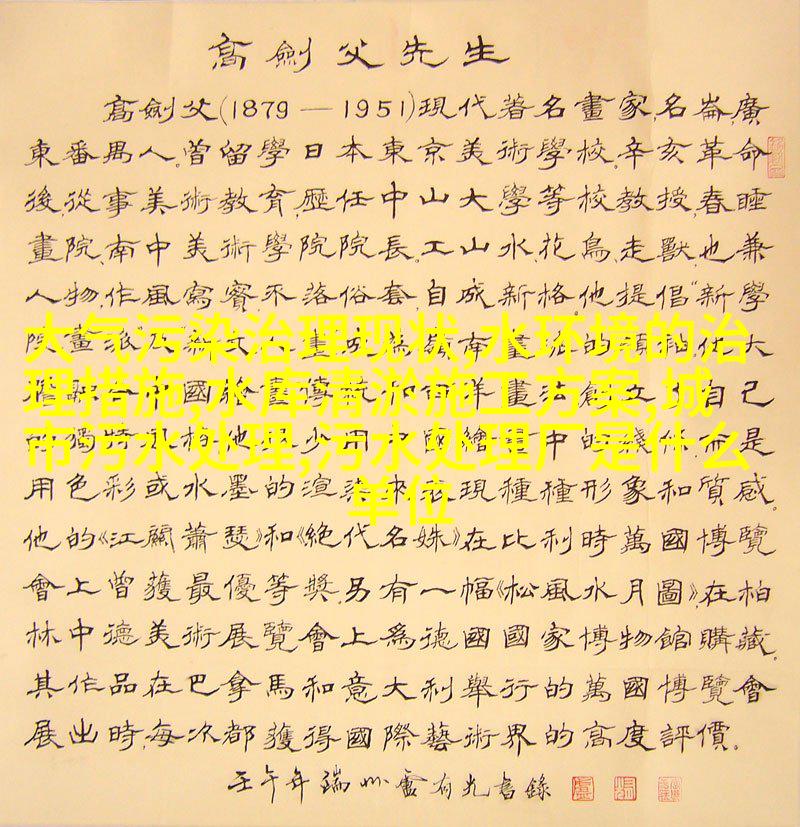 高劍父先生
高劍父(1879—1951)現代著名畫家,名崙,廣
東番禺人。曾留學日本東京美術學校。辛亥革命
後,從事美術教育,歷任中山大學等校教授,春睡
畫院、南中美術學院院長。工山水、花鳥、走獸,也兼
人物,作風寫實不落俗套,自成新格。他提倡“新學
大气污染治理现状,水环境的治
理措施,水库清淤施工方案,城
市污水处理,污水处理厂是什么
单位
用色彩或水墨的渲染來表現種種形象和質感。
他的《江關蕭瑟》和《絕代名姝》在比利時萬國博覽
會上曾獲最優等獎。另有一幅《松風水月圖》,在柏
林中德美術展覽會上為德國國家博物館購藏。
其作品在巴拿馬和意大利舉行的萬國博覽會
展出時,每次都獲得國際藝術界的高度評價。
壬午年端州盧有光書錄